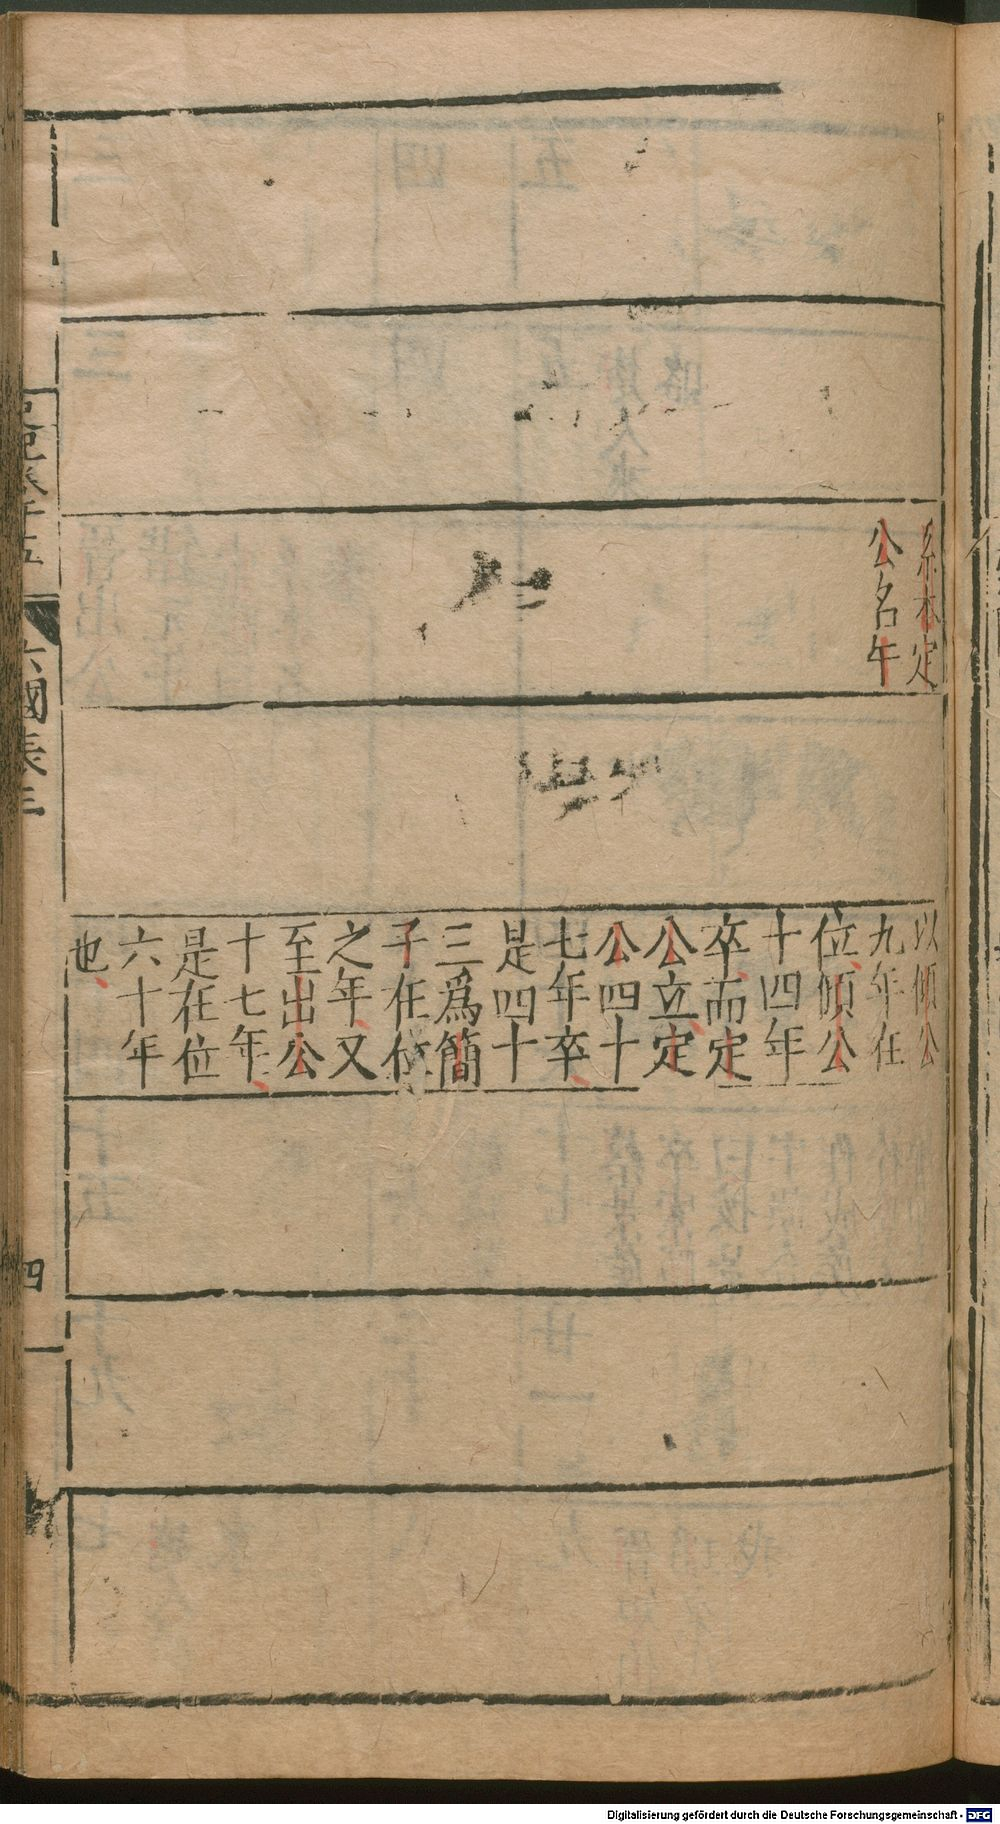 系本定
公名午
以傾公
九年在
位傾公
十四年
卒而定
公立定
公四十
七年卒
是四十
三爲簡
子在位
之年又
至出公
十七年
是在位
六十年
也
六國表三
四
Digitalisierung gefördert durch die Deutsche Forschungsgemeinschaft - DFG